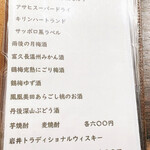 アサヒスーパードライ
キリンハートランド
サッポロ黒ラベル
雨後の月梅酒
富久長温州みかん酒
鶴梅完熟にごり梅酒
鶴梅ゆず酒
鳳凰美田あらごし桃のお酒
丹波深山ぶどう酒
芋焼酎 麦焼酎 各六〇〇円
岩井トラディショナルウィスキー